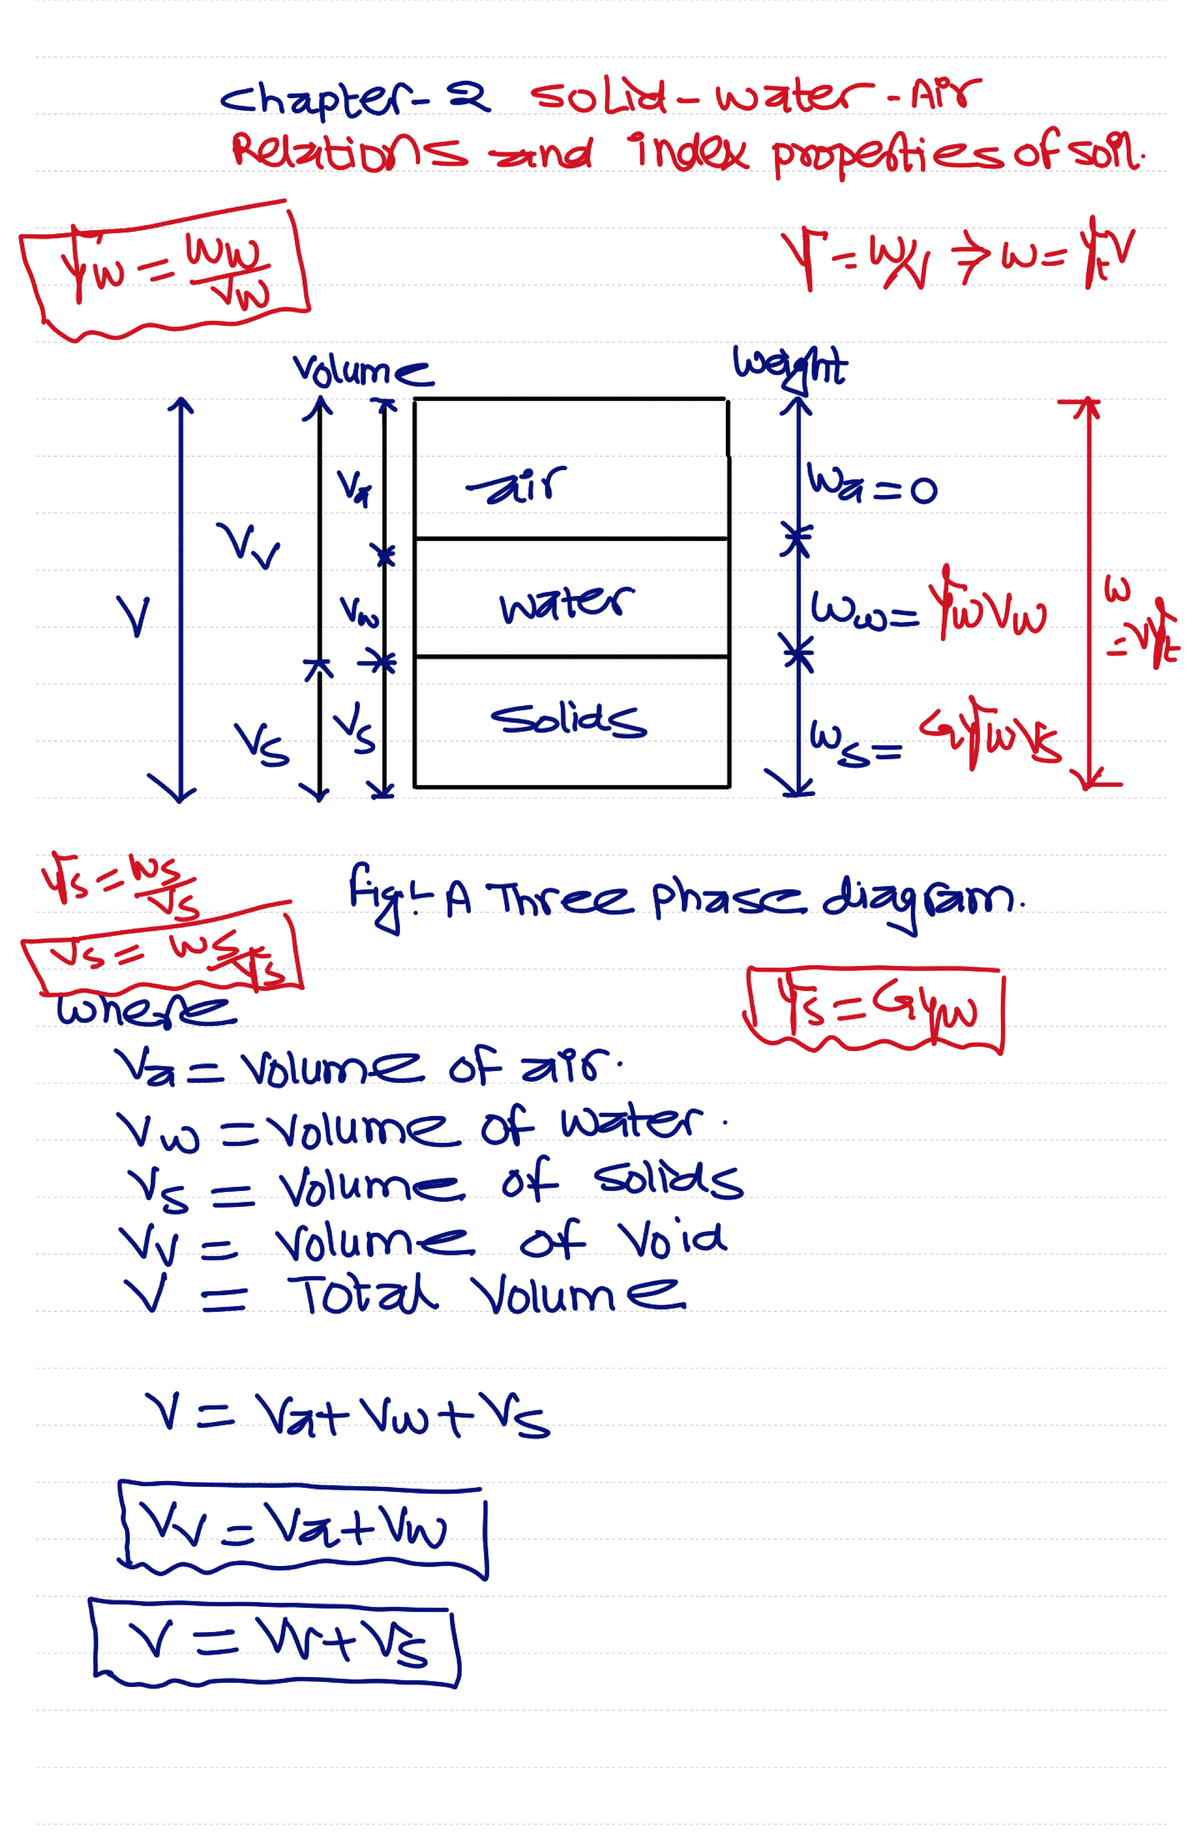 Chapter-2 Solid-water-Air
Relations and index properties of soil.
γw = Ww/Vw
γ = W/V ⇒ W = γt V
Volume
Weight
V
Vv
Vs
Va
Vw
Vs
air
water
Solids
Wa = 0
Ww = γw Vw
Ws = Gγw Vs
W
= Vγt
γs = Ws/Vs
Vs = Ws/γs
fig:- A Three phase diagram.
γs = Gγw
where
Va = Volume of air.
Vw = Volume of water.
Vs = Volume of solids
Vv = Volume of Void
V = Total Volume
V = Va + Vw + Vs
Vv = Va + Vw
V = Vv + Vs